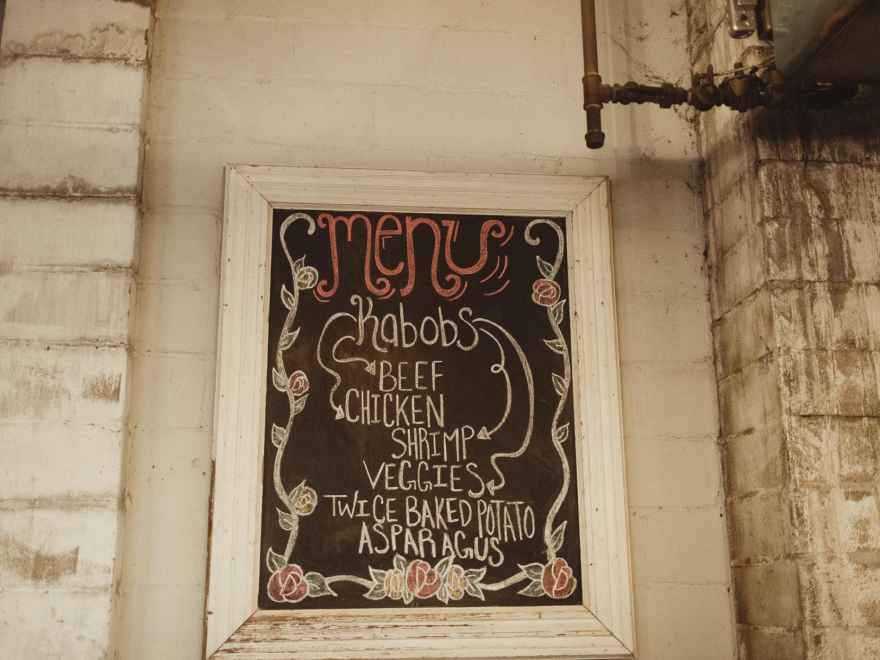 menu
Kabobs
BEEF
CHICKEN
SHRIMP
VEGGIES
TWICE BAKED POTATO
ASPARAGUS